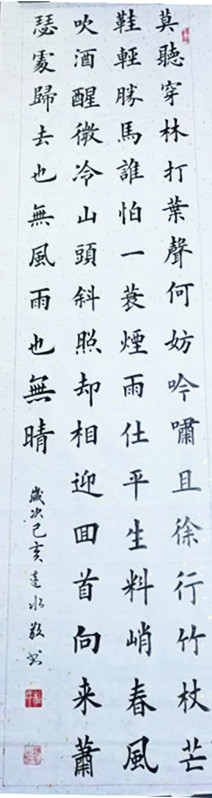 莫聽穿林打葉聲何妨吟嘯且徐行竹杖芒
鞋輕勝馬誰怕一蓑煙雨任平生料峭春風
吹酒醒微冷山頭斜照却相迎囬首向来蕭
瑟處歸去也無風雨也無晴
歲次己亥